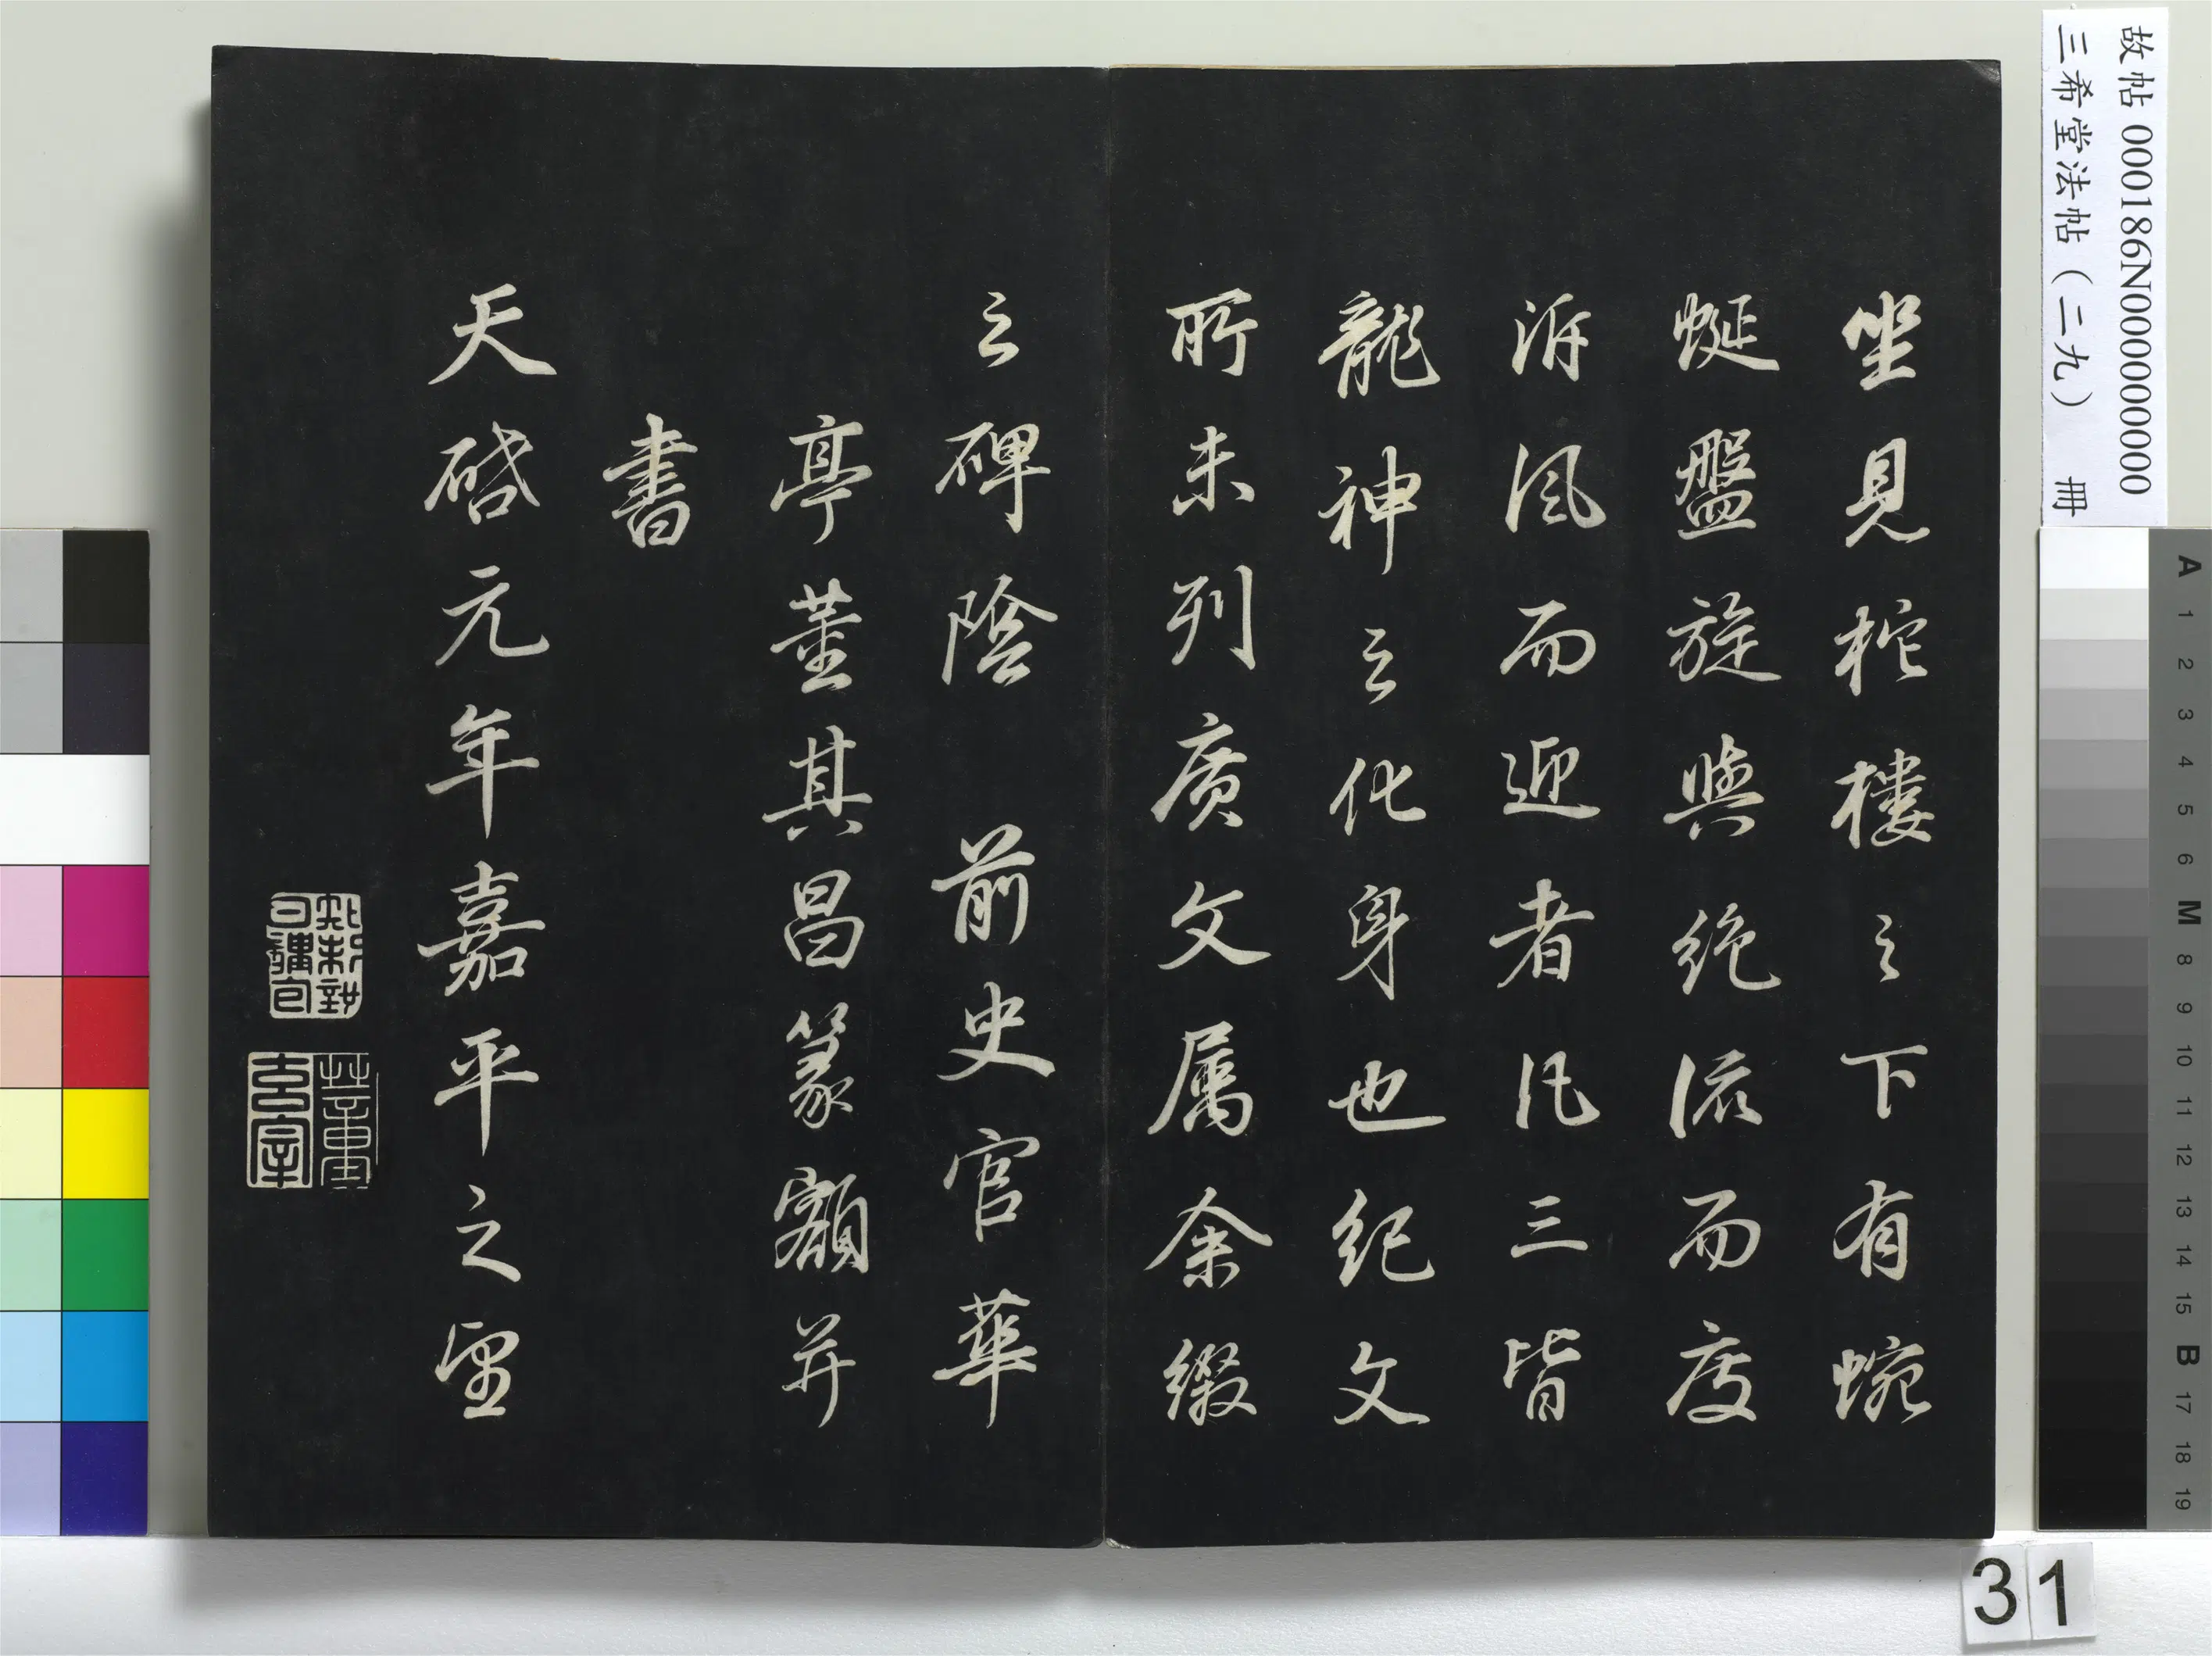 坐見柁樓之下有蜿
蜒盤旋與絶流而度
泝風而迎者凡三皆
龍神之化身也紀文
所未列廣文属余綴
之碑陰 前史官華
亭董其昌篆額并
書
天啓元年嘉平之望
知制誥日講官
董玄宰
故帖 000186N000000000
三希堂法帖（二九） 冊
31
A 1 2 3 4 5 6 M 8 9 10 11 12 13 14 15 B 17 18 19